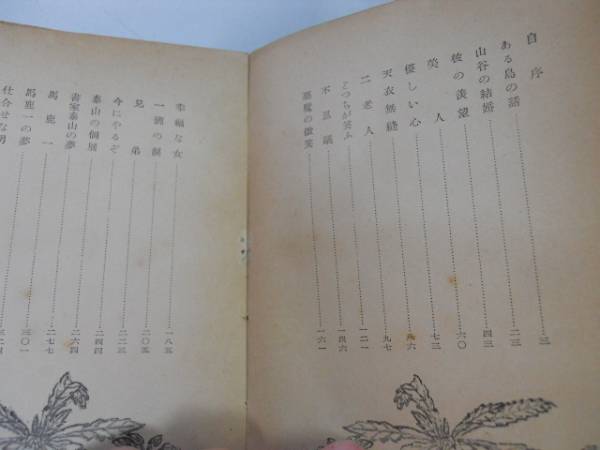 自序……三
ある島の話……二三
山谷の結婚……四三
彼の羨望……六〇
美人……七三
優しい心……八六
天衣無縫……九七
二老人……一二一
どつちが笑ふ……一四六
不思議……
悪魔の微笑……一六一
幸福な女……一八五
一滴の涙
兄弟……二〇五
今にやるぞ……二二三
泰山の個展……二四四
書家泰山の夢……二六四
馬鹿一……二七七
馬鹿一の夢……三〇一
仕合せな男……三二四